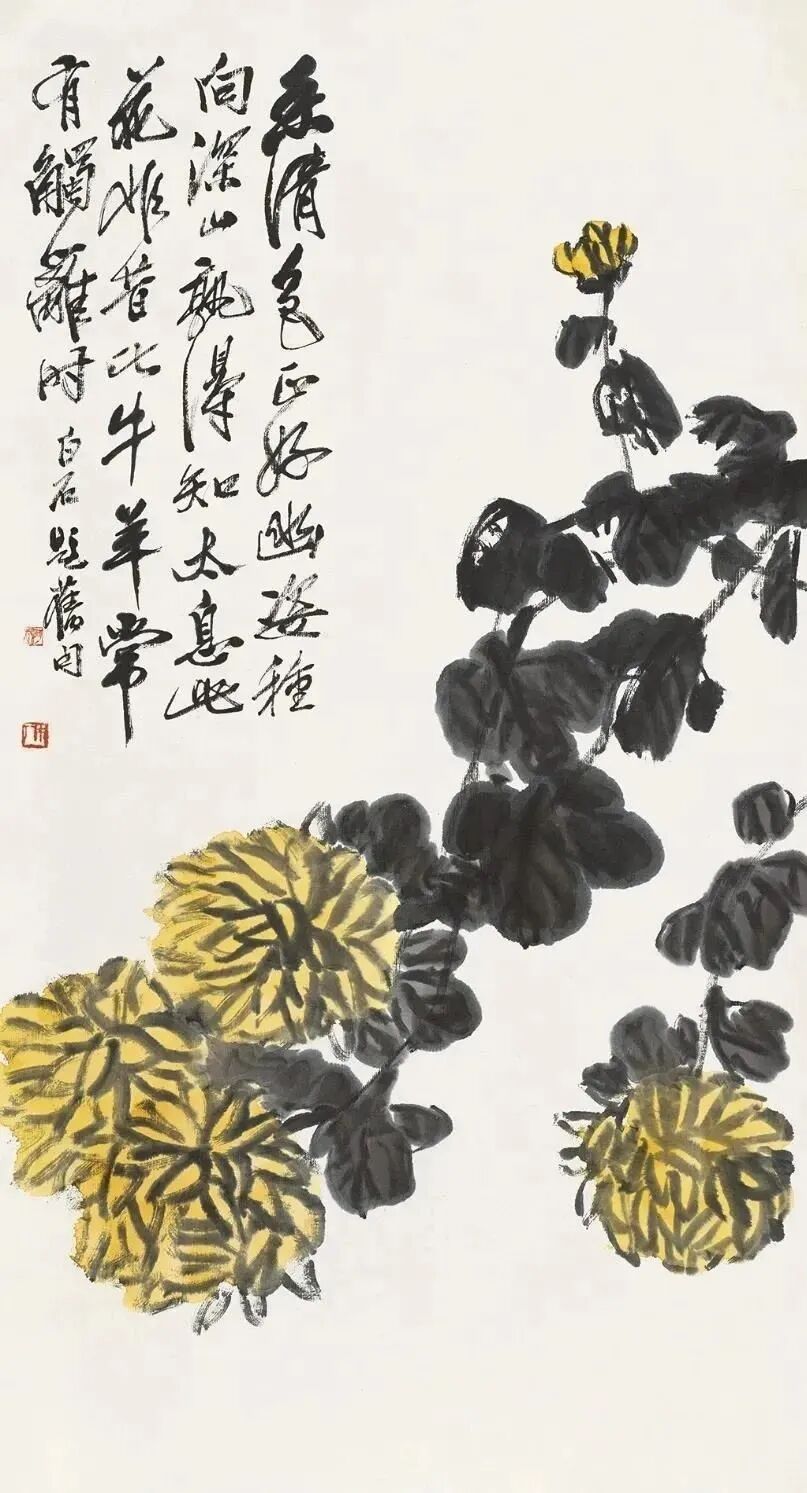 香清色正好幽姿種
向深山孰得知太息此
花非昔比牛羊常
有觸籬时 白石題舊句